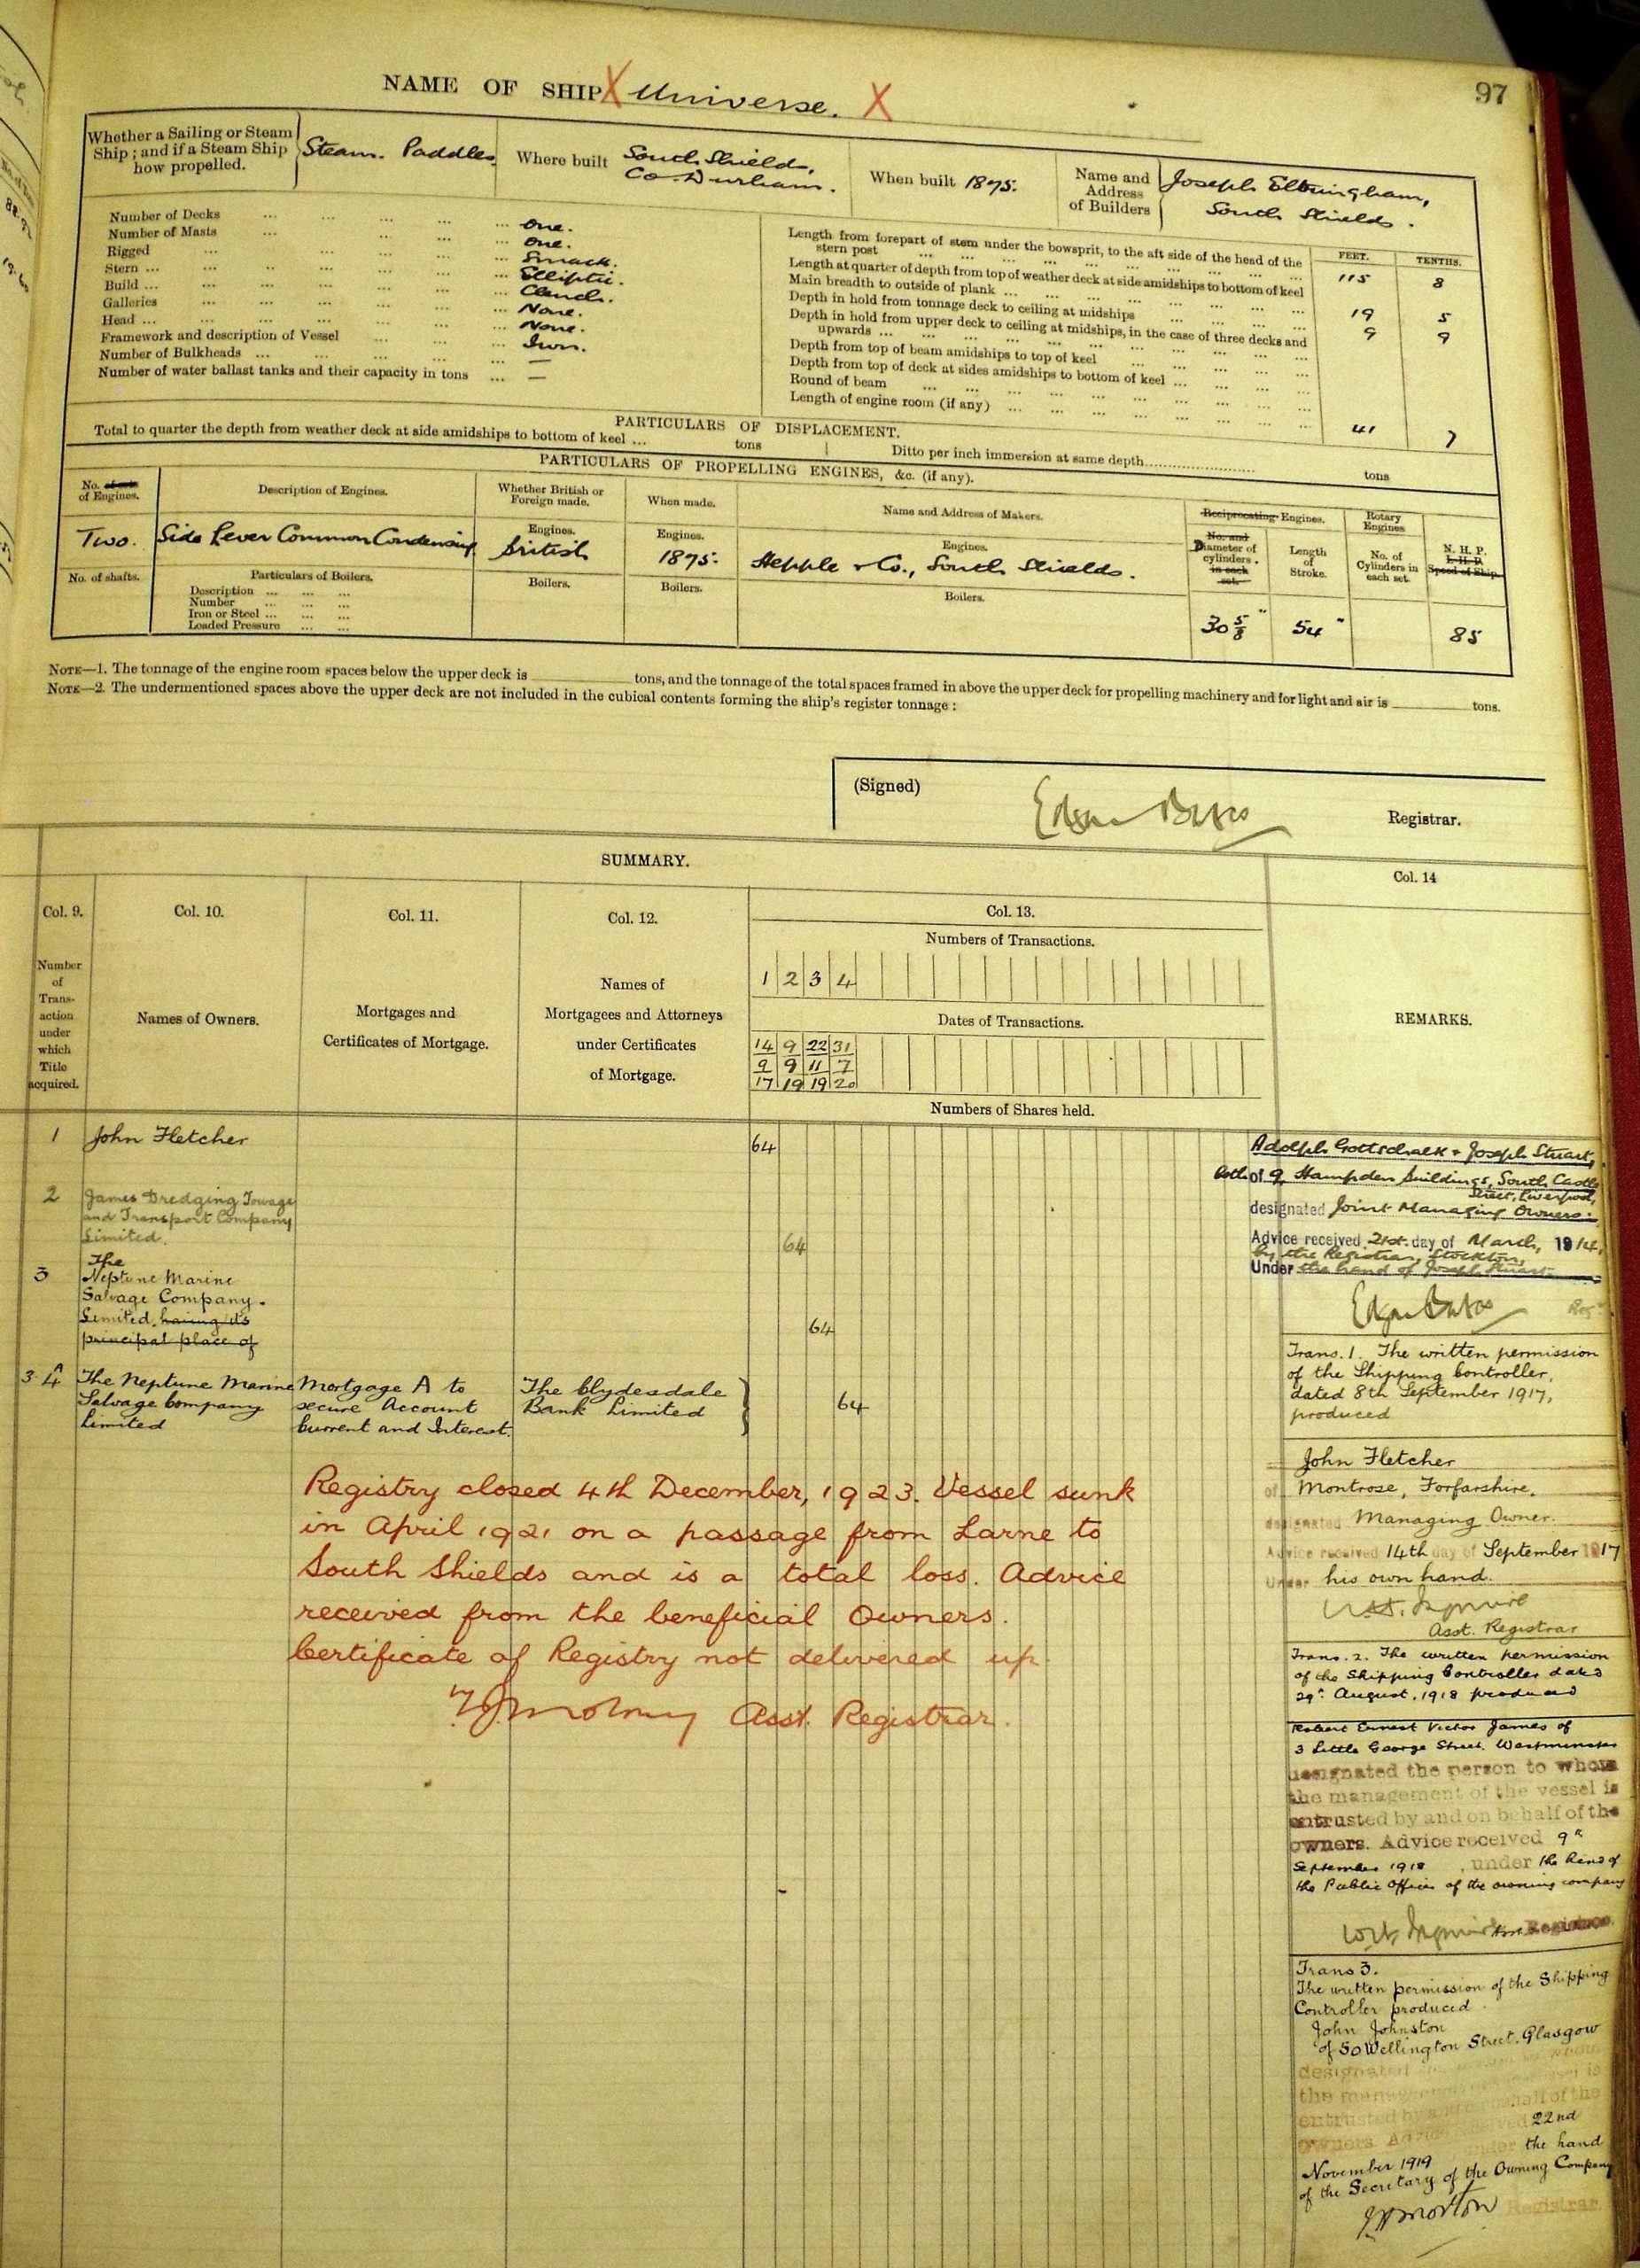 97
NAME OF SHIP X Universe. X
Whether a Sailing or Steam
Ship; and if a Steam Ship
how propelled.
Steam. Paddles.
Where built South Shields,
Co. Durham.
When built 1875.
Name and
Address
of Builders
Joseph Eltringham,
South Shields.
Number of Decks ... One.
Number of Masts ... One.
Rigged ... Smack.
Stern ... Elliptic.
Build ... Clench.
Galleries ... None.
Head ... None.
Framework and description of Vessel ... Iron.
Number of Bulkheads ... —
Number of water ballast tanks and their capacity in tons ... —
FEET. TENTHS.
Length from forepart of stem under the bowsprit, to the aft side of the head of the
stern post ... 115 8
Length at quarter of depth from top of weather deck at side amidships to bottom of keel
Main breadth to outside of plank ... 19 5
Depth in hold from tonnage deck to ceiling at midships ... 9 9
Depth in hold from upper deck to ceiling at midships, in the case of three decks and
upwards ...
Depth from top of beam amidships to top of keel ...
Depth from top of deck at sides amidships to bottom of keel ...
Round of beam ...
Length of engine room (if any) ... 41 7
PARTICULARS OF DISPLACEMENT.
Total to quarter the depth from weather deck at side amidships to bottom of keel ... tons
Ditto per inch immersion at same depth.................... tons
PARTICULARS OF PROPELLING ENGINES, &c. (if any).
No. of sets
of Engines.
Description of Engines.
Whether British or
Foreign made.
When made.
Name and Address of Makers.
Reciprocating Engines.
Rotary
Engines
No. and
Diameter of
cylinders.
in each
set.
Length
of
Stroke.
No. of
Cylinders in
each set.
N. H. P.
I. H. P.
Speed of Ship.
Two.
Side Lever Common Condensing
Engines.
British
Engines.
1875.
Engines.
Hepple & Co., South Shields.
No. of shafts.
Particulars of Boilers.
Description ...
Number ...
Iron or Steel ...
Loaded Pressure ...
Boilers.
Boilers.
Boilers.
30 5/8" 54" 85
NOTE—1. The tonnage of the engine room spaces below the upper deck is ______ tons, and the tonnage of the total spaces framed in above the upper deck for propelling machinery and for light and air is ______ tons.
NOTE—2. The undermentioned spaces above the upper deck are not included in the cubical contents forming the ship's register tonnage:
(Signed) Registrar.
SUMMARY.
Col. 9.
Col. 10.
Col. 11.
Col. 12.
Col. 13.
Col. 14
Number
of
Trans-
action
under
which
Title
acquired.
Names of Owners.
Mortgages and
Certificates of Mortgage.
Names of
Mortgagees and Attorneys
under Certificates
of Mortgage.
Numbers of Transactions.
1 2 3 4
Dates of Transactions.
14 9 22 31
9 9 11 7
17 19 19 20
Numbers of Shares held.
REMARKS.
1 John Fletcher 64
2 James Dredging Towage
and Transport Company
Limited. 64
3 The
Neptune Marine
Salvage Company.
Limited, having its
principal place of 64
3 A 4 The Neptune Marine
Salvage Company
Limited
Mortgage A to
secure Account
Current and Interest.
The Clydesdale
Bank Limited
64
Registry closed 4th December, 1923. Vessel sunk
in April 1921 on a passage from Larne to
South Shields and is a total loss. Advice
received from the beneficial Owners.
Certificate of Registry not delivered up.
Asst. Registrar.
Adolph Gottschalk & Joseph Stuart,
both of 9, Hampden Buildings, South Castle
Street, Liverpool,
designated Joint Managing Owners.
Advice received 21st day of March, 1914,
by the Registrar, Stockton,
Under the hand of Joseph Stuart.
Trans. 1. The written permission
of the Shipping Controller,
dated 8th September 1917,
produced
John Fletcher
of Montrose, Forfarshire.
designated Managing Owner.
Advice received 14th day of September 1917
Under his own hand.
Asst. Registrar
Trans. 2. The written permission
of the Shipping Controller dated
29th August, 1918 produced
Robert Ernest Victor James of
3 Little George Street. Westminster
designated the person to whom
the management of the vessel is
entrusted by and on behalf of the
owners. Advice received 9th
September 1918, under the hand of
the Public Officer of the owning company
Registrar.
Trans 3.
The written permission of the Shipping
Controller produced.
John Johnston
of 50 Wellington Street. Glasgow
designated the person to whom
the management of the vessel is
entrusted by and on behalf of the
owners. Advice received 22nd
November 1919 under the hand
of the Secretary of the Owning Company
Registrar.